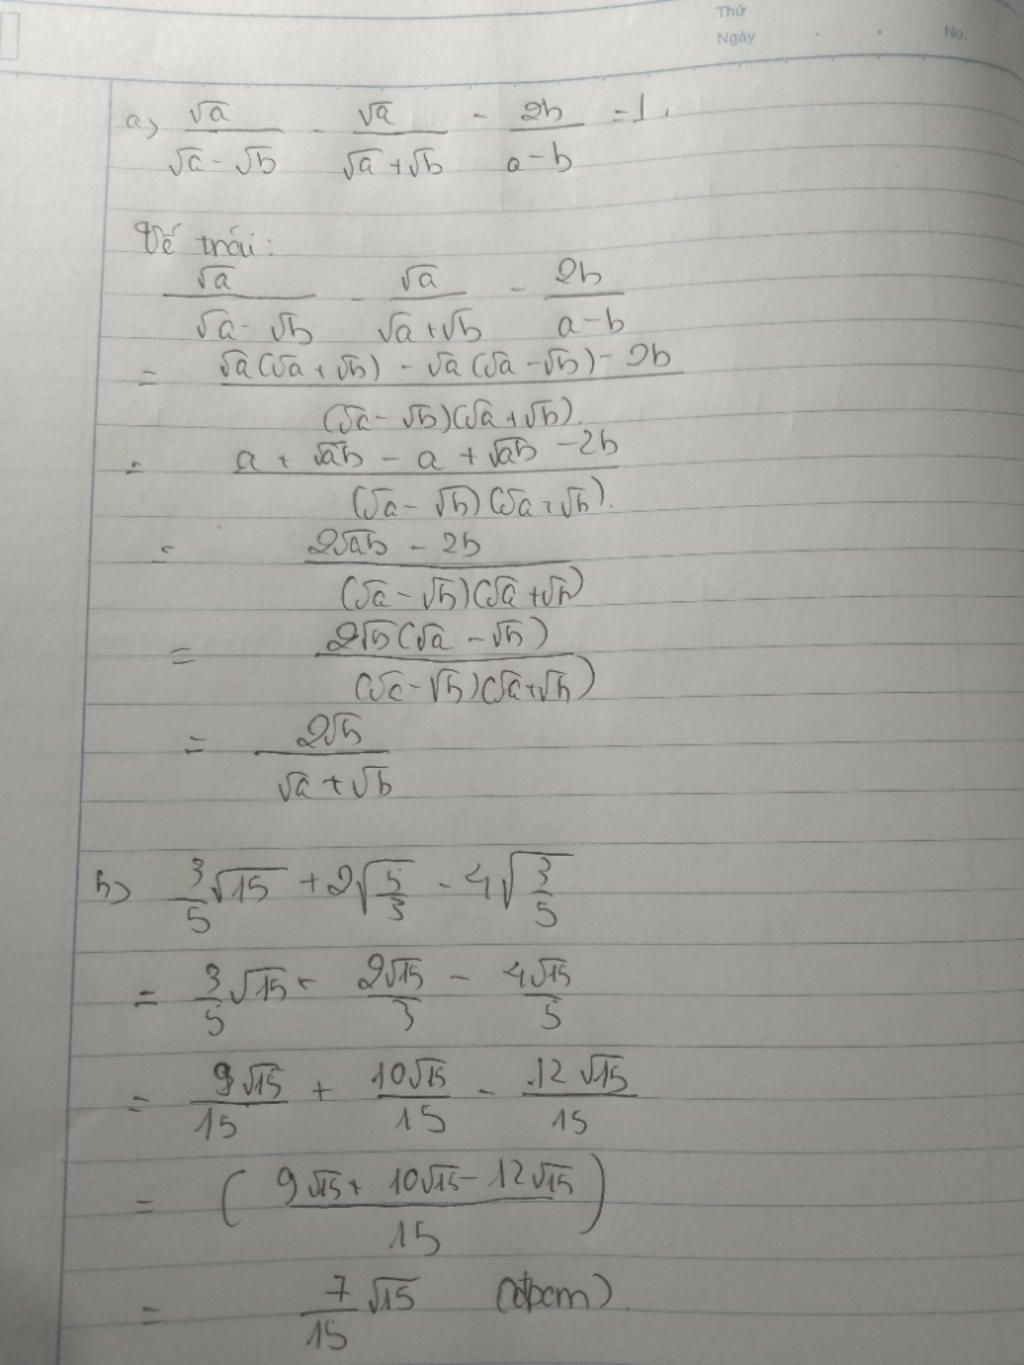 Thứ
Ngày . . No.
a) √a/(√a - √b) - √a/(√a + √b) - 2b/(a - b) = 1.
Vế trái:
√a/(√a - √b) - √a/(√a + √b) - 2b/(a - b)
= (√a(√a + √b) - √a(√a - √b) - 2b)/((√a - √b)(√a + √b))
= (a + √ab - a + √ab - 2b)/((√a - √b)(√a + √b))
= (2√ab - 2b)/((√a - √b)(√a + √b))
= (2√b(√a - √b))/((√a - √b)(√a + √b))
= 2√b/(√a + √b)
b) 3/5 √15 + 2√(5/3) - 4√(3/5)
= 3/5 √15 + 2√15/3 - 4√15/5
= 9√15/15 + 10√15/15 - 12√15/15
= ((9√15 + 10√15 - 12√15)/15)
= 7/15 √15 (đpcm).